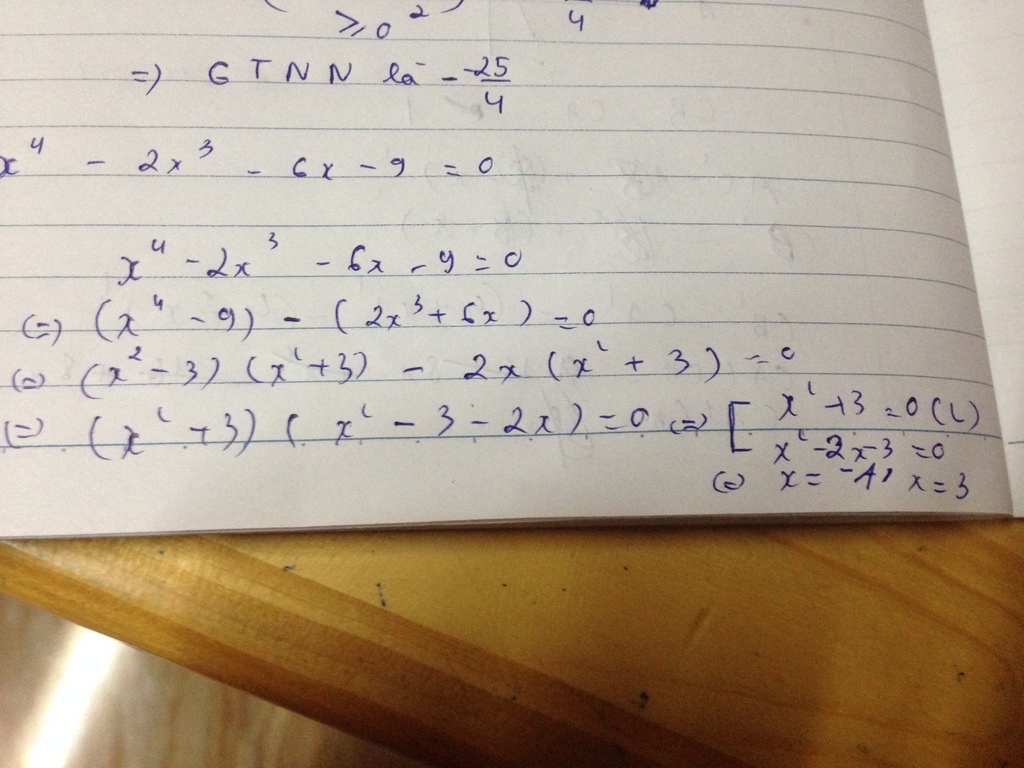 ≥ 0 2) 4
=> GTNN là -25/4
x⁴ - 2x³ - 6x - 9 = 0
x⁴ - 2x³ - 6x - 9 = 0
(=) (x⁴ - 9) - (2x³ + 6x) = 0
(=) (x² - 3) (x² + 3) - 2x (x² + 3) = 0
(=) (x² + 3) (x² - 3 - 2x) = 0 (=) [ x² + 3 = 0 (L)
x² - 2x - 3 = 0
(=) x = -1, x = 3